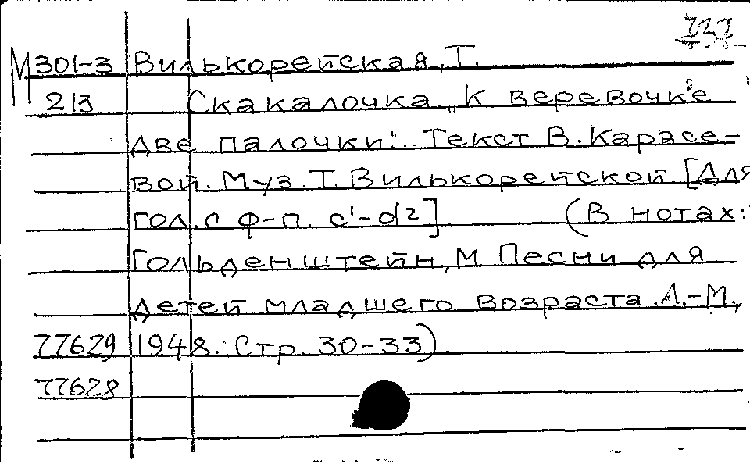 М301-3 Вилькорейская, Т.
2/3 Скакалочка „К веревочке
две палочки". Текст В. Карасе-
вой. Муз. Т. Вилькорейской [Для
гол. с ф-п. c¹-d²] (В нотах:
Гольденштейн, М. Песни для
детей младшего возраста. Л.-М.,
77629 1948. Стр. 30-33)
77628